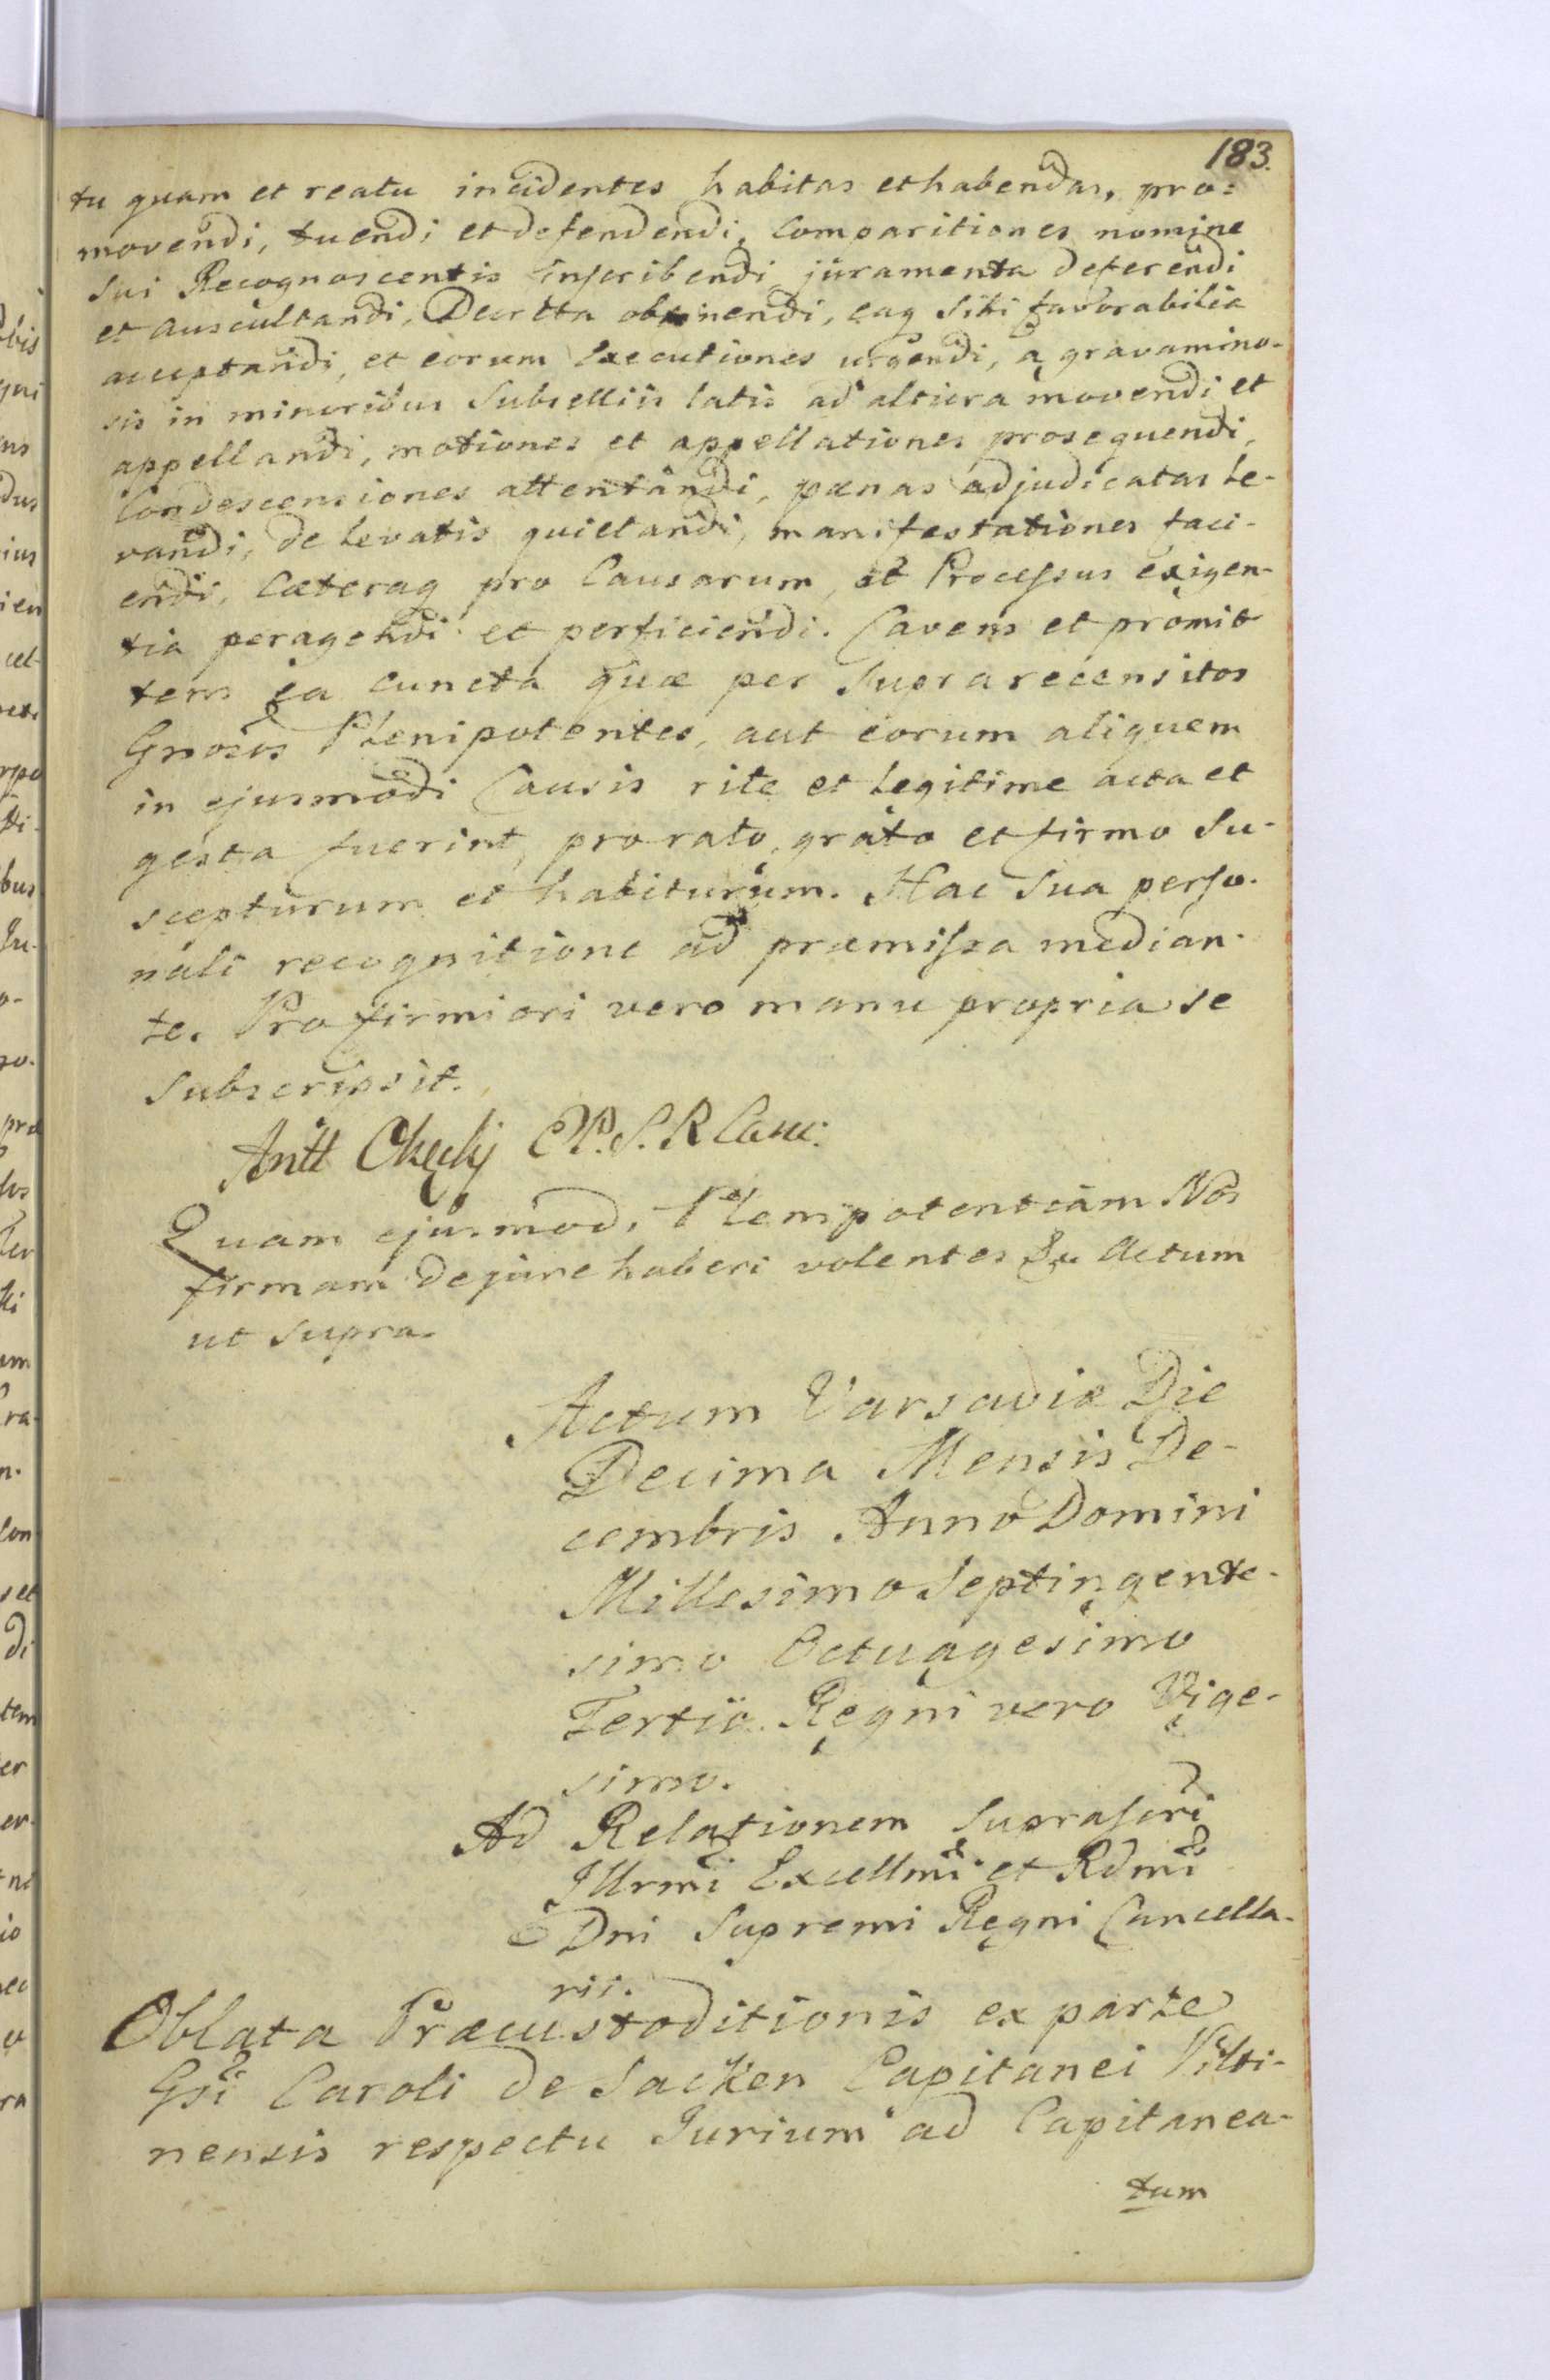 183.
tu quam et reatu incidentes habitas et habendas, pro=
movendi, tuendi et defendendi, Comparitiones nomine
sui Recognoscentis inscribendi juramenta deferendi
et auscultandi, Decreta obtinendi, eaq sibi favorabilia
acceptandi, et eorum Executiones urgendi, a gravamino-
sis in minoribus Subselliis latis ad altiora movendi et
appellandi, motiones et appellationes prosequendi,
Condescensiones attentandi, pænas adjudicatas le-
vandi, de levatis quiettandi, manifestationes faci-
endi, Cæteraq pro Causarum, et Processus exigen-
tia peragendi et perficiendi. Cavens et promit-
tens ea cuncta quæ per Suprarecensitos
Gnosos Plenipotentes, aut eorum aliquem
in ejusmodi Causis rite et legitime acta et
gesta fuerint, pro rato, grato et firmo Su-
scepturum et habiturum. Hac Sua perso-
nali recognitione ad præmissa median-
te. Pro firmiori vero manu propria se
Subscripsit.
Antt Okęcki E.P. S. R Canc:
Quam ejusmodi Plenipotentiam Nos
firmam de jure haberi volentes &c Actum
ut supra.
Actum Varsaviæ Die
Decima Mensis De-
cembris Anno Domini
Millesimo Septingente-
simo Octuagesimo
Tertio. Regni vero Vige-
simo.
Ad Relationem Suprascri
Illrmi Excellmi et Rdmi
Dni Supremi Regni Cancella-
rii.
Oblata Præcustoditionis ex parte
Gsi Caroli de Sacken Capitanei Pilti-
nensis respectu Jurium ad Capitanea-
tum